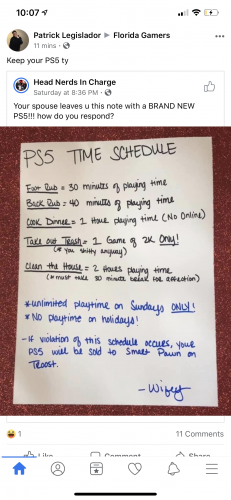 10:07
Patrick Legislador ▸ Florida Gamers
11 mins ·
Keep your PS5 ty
Head Nerds In Charge
Saturday at 8:36 PM ·
Your spouse leaves u this note with a BRAND NEW
PS5!!! how do you respond?
PS5 TIME SCHEDULE
Foot Rub = 30 minutes of playing time
Back Rub = 40 minutes of playing time
Cook Dinner = 1 Hour playing time (No Online)
Take out Trash = 1 Game of 2K Only!
(* You shitty anyway)
Clean the House = 2 Hours playing time
(* must take 30 minute break for affection)
* unlimited playtime on Sundays ONLY!
* NO playtime on holidays!
- IF violation of this schedule occurs, your
PS5 will be sold to Smart Pawn on
Troost.
- Wifey
1
11 Comments
Like Comment Share